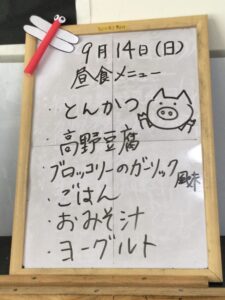 9月14日(日)
昼食メニュー
・とんかつ
・高野豆腐
・ブロッコリーのガーリック風味
・ごはん
・おみそ汁
・ヨーグルト